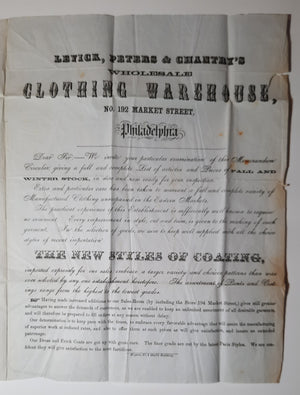 LEVICK, PETERS & CHANTRY'S
WHOLESALE
CLOTHING WAREHOUSE,
NO. 192 MARKET STREET,
Philadelphia
Dear Sir,—We invite your particular examination of this Memorandum
Circular, giving a full and complete List of articles and Prices of FALL AND
WINTER STOCK, in store and now ready for your inspection.
Extra and particular care has been taken to warrant a full and complete variety of
Manufactured Clothing unsurpassed in the Eastern Markets.
The practical experience of this Establishment is sufficiently well known to require
no comment. Every improvement in style, cut and trim, is given to the making of each
garment. In the selection of goods, we aim to keep well supplied with all the choice
styles of recent importation
THE NEW STYLES OF COATING,
imported expressly for our sales embrace a larger variety and choicer patterns than were
ever selected by any one establishment heretofore. The assortment of Pants and Vest-
ings range from the highest to the lowest goods.
Having made increased additions to our Sales-House (by including the Store 194 Market Street,) gives still greater
advantages to answer the demands of customers, as we are enabled to keep an unlimited assortment of all desirable garments,
and will therefore be prepared to fill orders at any season without delay.
Our determination is to keep pace with the times, to embrace every favorable advantage that will assist the manufacturing
of superior work at reduced rates, and also to offer them at such prices as will give satisfaction, and insure an extended
patronage.
Our Dress and Frock Coats are got up with great care. The fine grades are cut by the latest Paris Styles. We are con-
fident they will give satisfaction to the most fastidious.